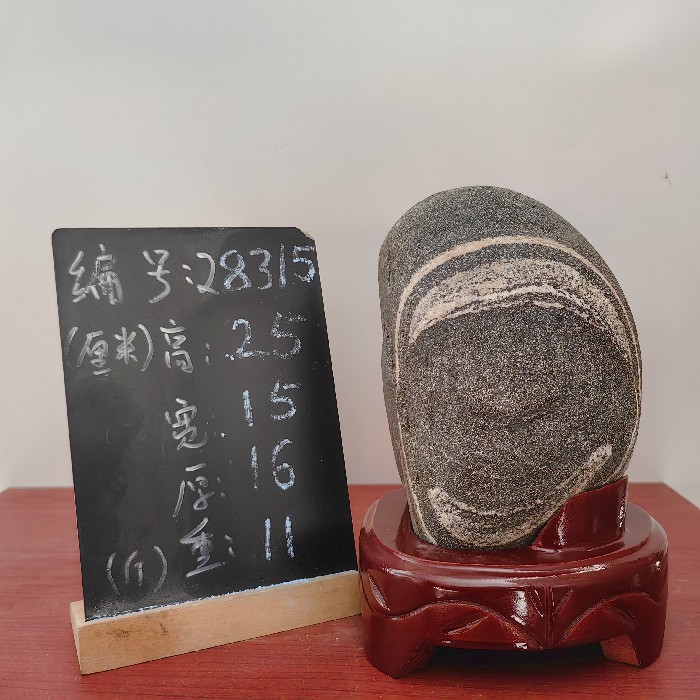 编号:28315
(厘米)高:25
宽:15
厚:16
(斤)重:11